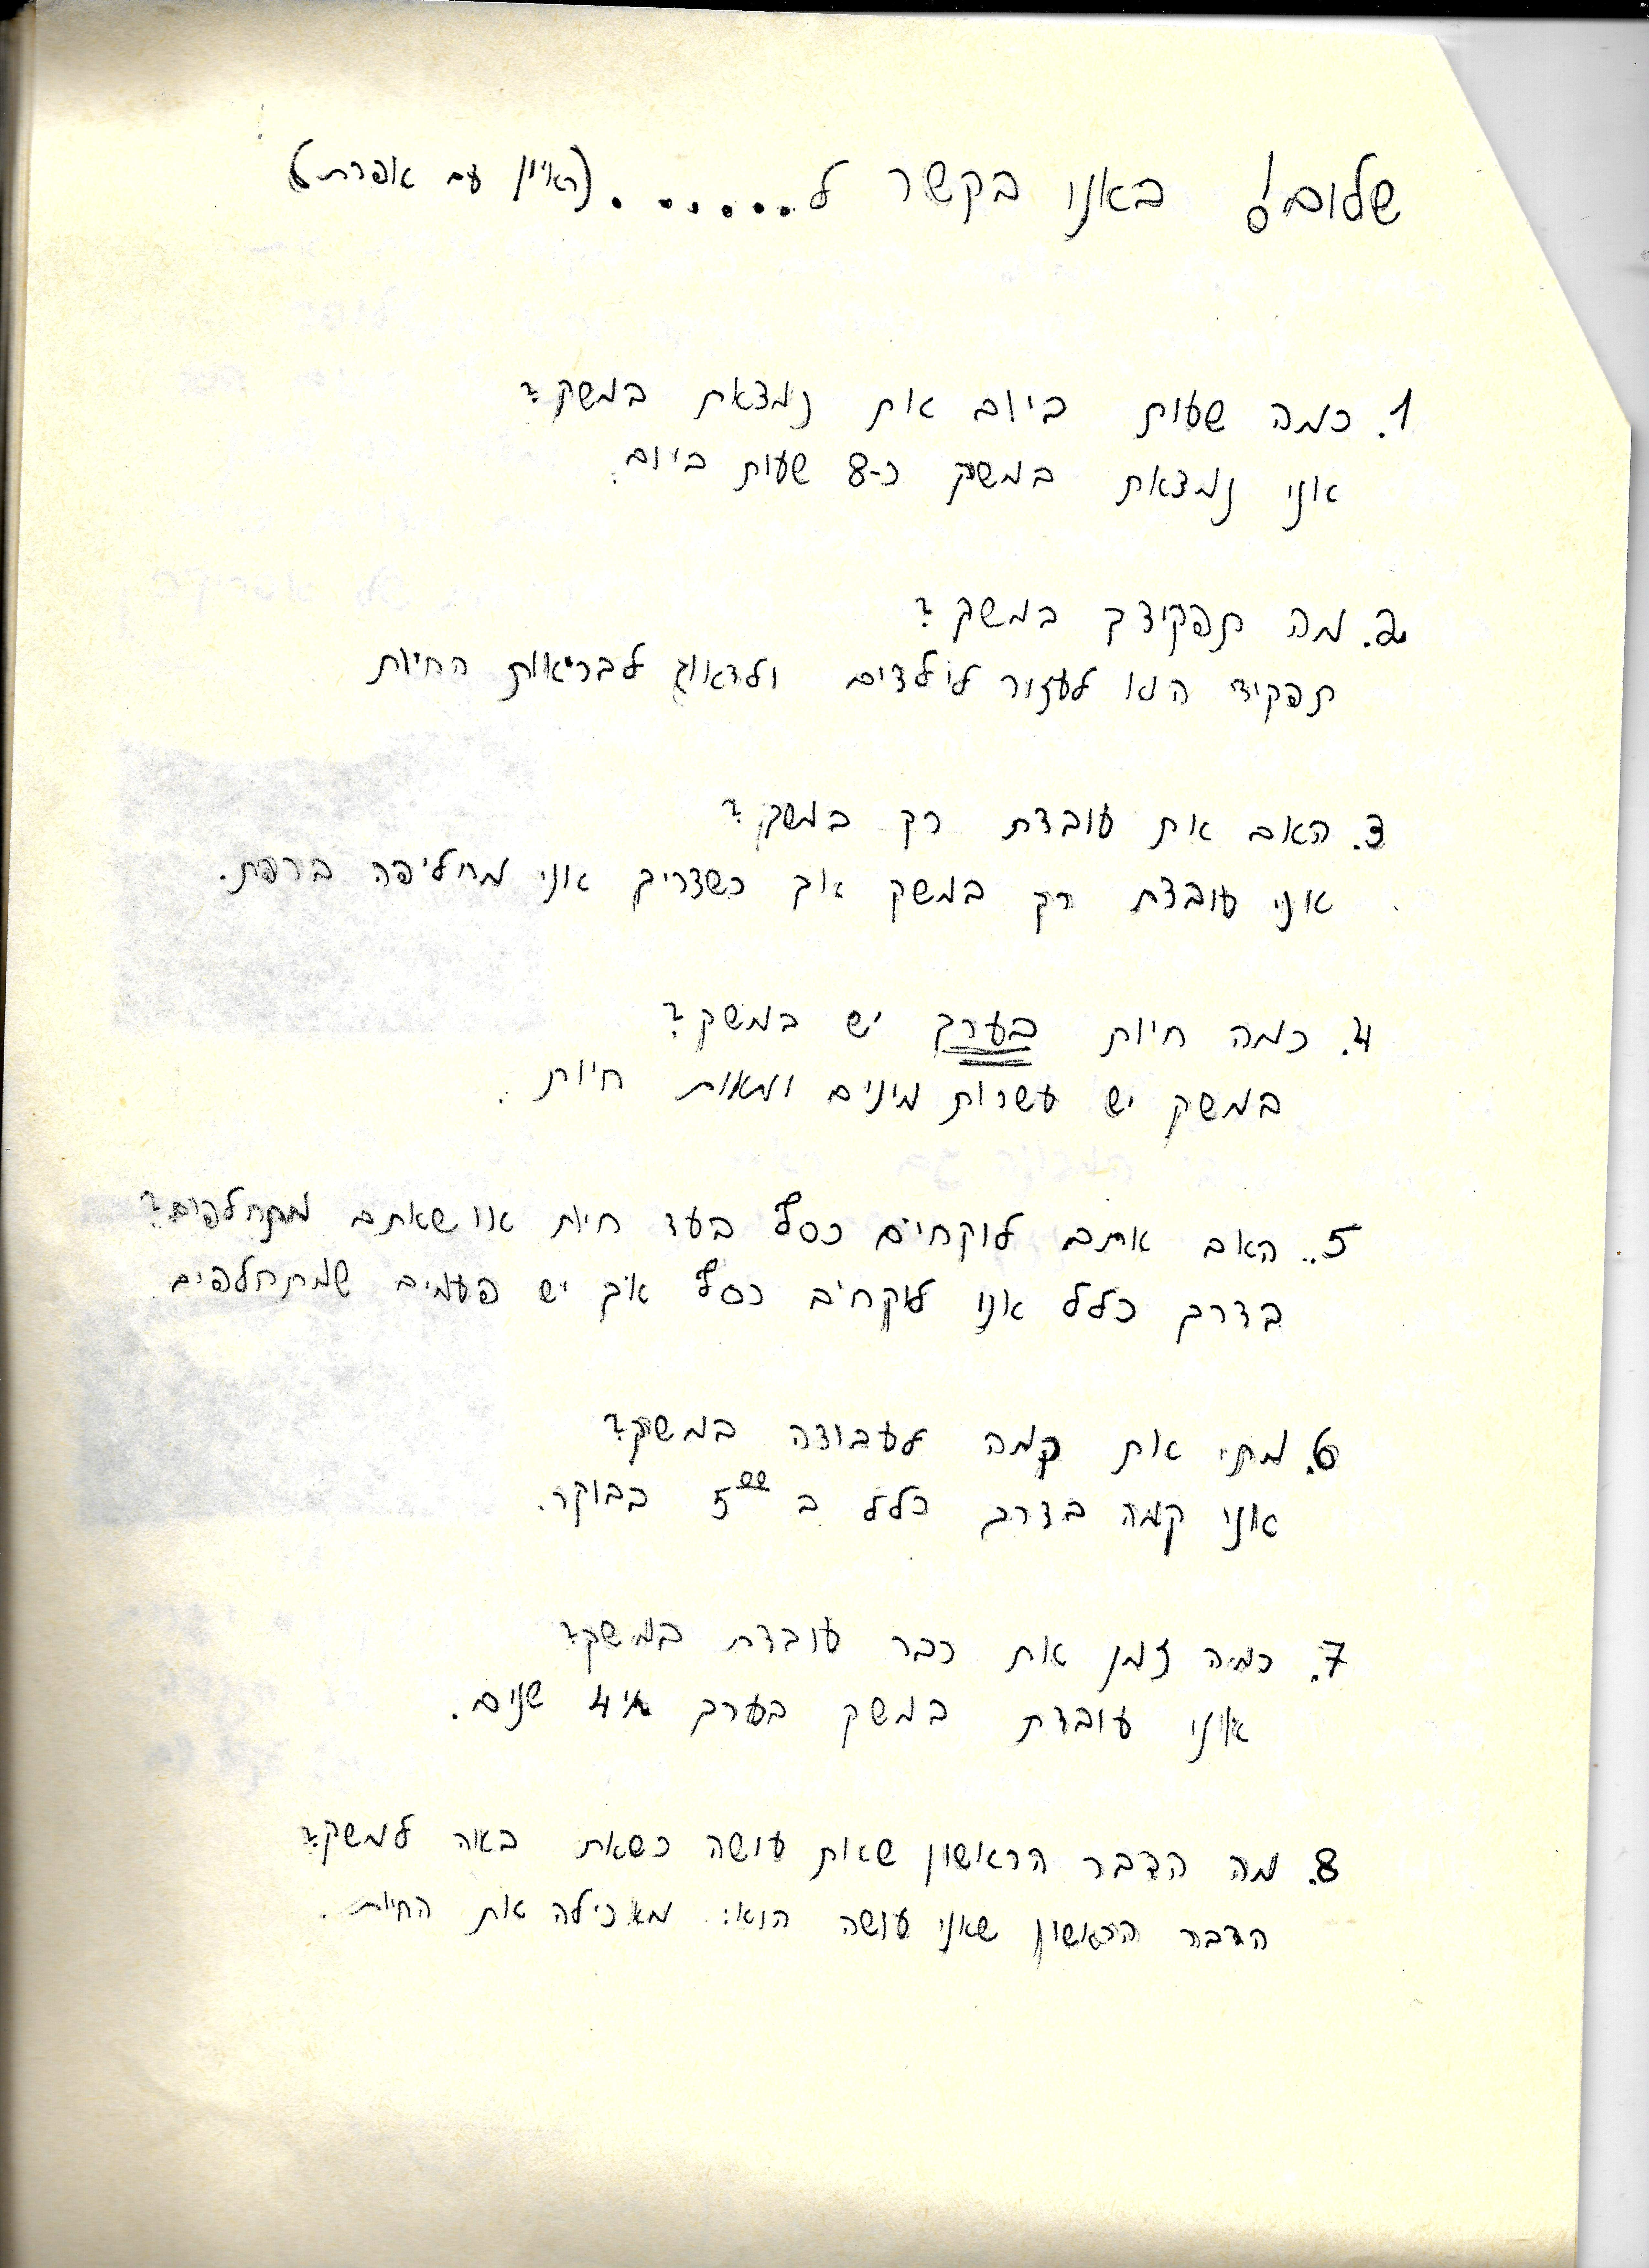 שלום! באנו בקשר ל....... (ראיון עם אפרת)
1. כמה שעות ביום את נמצאת במשק?
אני נמצאת במשק כ-8 שעות ביום.
2. מה תפקידך במשק?
תפקידי הוא לעזור לילדים ולדאוג לבריאות החיות
3. האם את עובדת רק במשק?
אני עובדת רק במשק אך כשצריך אני מחליפה ברפת.
4. כמה חיות בערך יש במשק?
במשק יש עשרות מינים ומאות חיות.
5. האם אתם לוקחים כסף בעד חיות או שאתם מתחלפים?
בדרך כלל אנו לוקחים כסף אך יש פעמים שמתחלפים
6. מתי את קמה לעבודה במשק?
אני קמה בדרך כלל ב 5⁰⁰ בבוקר.
7. כמה זמן את כבר עובדת במשק?
אני עובדת במשק בערך 4 שנים.
8. מה הדבר הראשון שאת עושה כשאת באה למשק?
הדבר הראשון שאני עושה הוא: מאכילה את החיות.